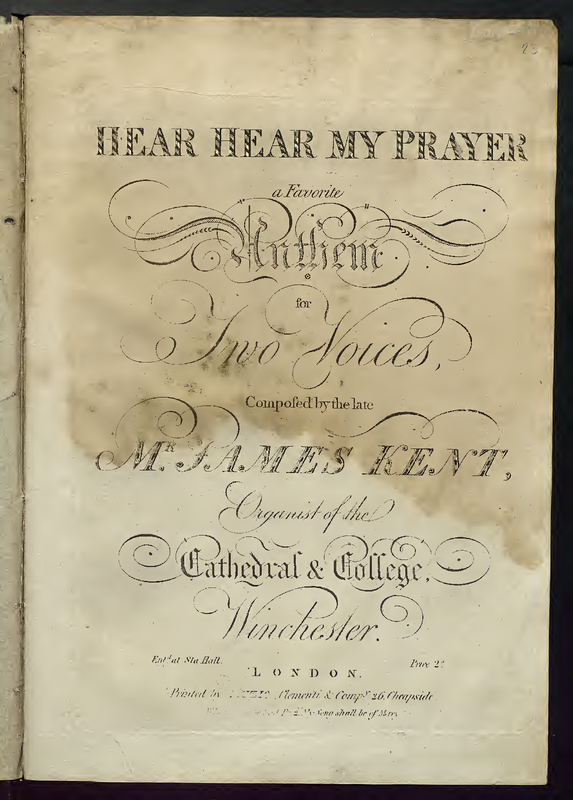 23
HEAR HEAR MY PRAYER
a Favorite
Anthem
for
Two Voices,
Compoſed by the late
Mr. JAMES KENT,
Organist of the
Cathedral & College,
Winchester.
Entd. at Sta. Hall.
Price 2s
LONDON.
Printed by Clementi & Compy. 26, Cheapside
My Song shall be of Mercy